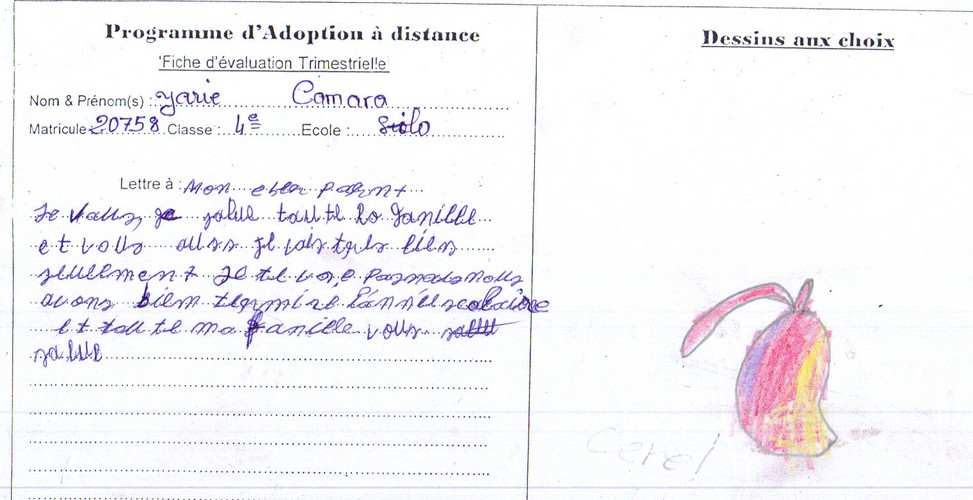 Programme d'Adoption à distance
Fiche d'évaluation Trimestrielle
Nom & Prénom(s) : yarie Camara
Matricule 20758 Classe : 4e Ecole : Siolo
Lettre à : Mon cher parent
Je vous, je salue toute la famille
et vous aussi je vais très bien
seulement je te
avons bien terminé l'année scolaire
et toute ma famille vous salut
salue
Dessins aux choix
Cerel